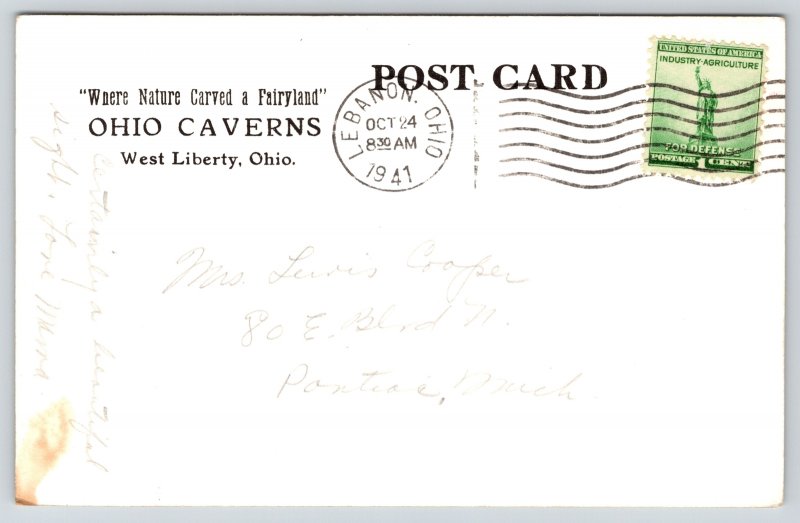 POST CARD
"Where Nature Carved a Fairyland"
OHIO CAVERNS
West Liberty, Ohio.
LEBANON, OHIO
OCT 24
8 30 AM
1941
UNITED STATES OF AMERICA
INDUSTRY-AGRICULTURE
FOR DEFENSE
POSTAGE 1 CENT
Certainly a beautiful
sight. Love Mama.
Mrs. Lewis Cooper
80 E. Blvd N.
Pontiac, Mich.